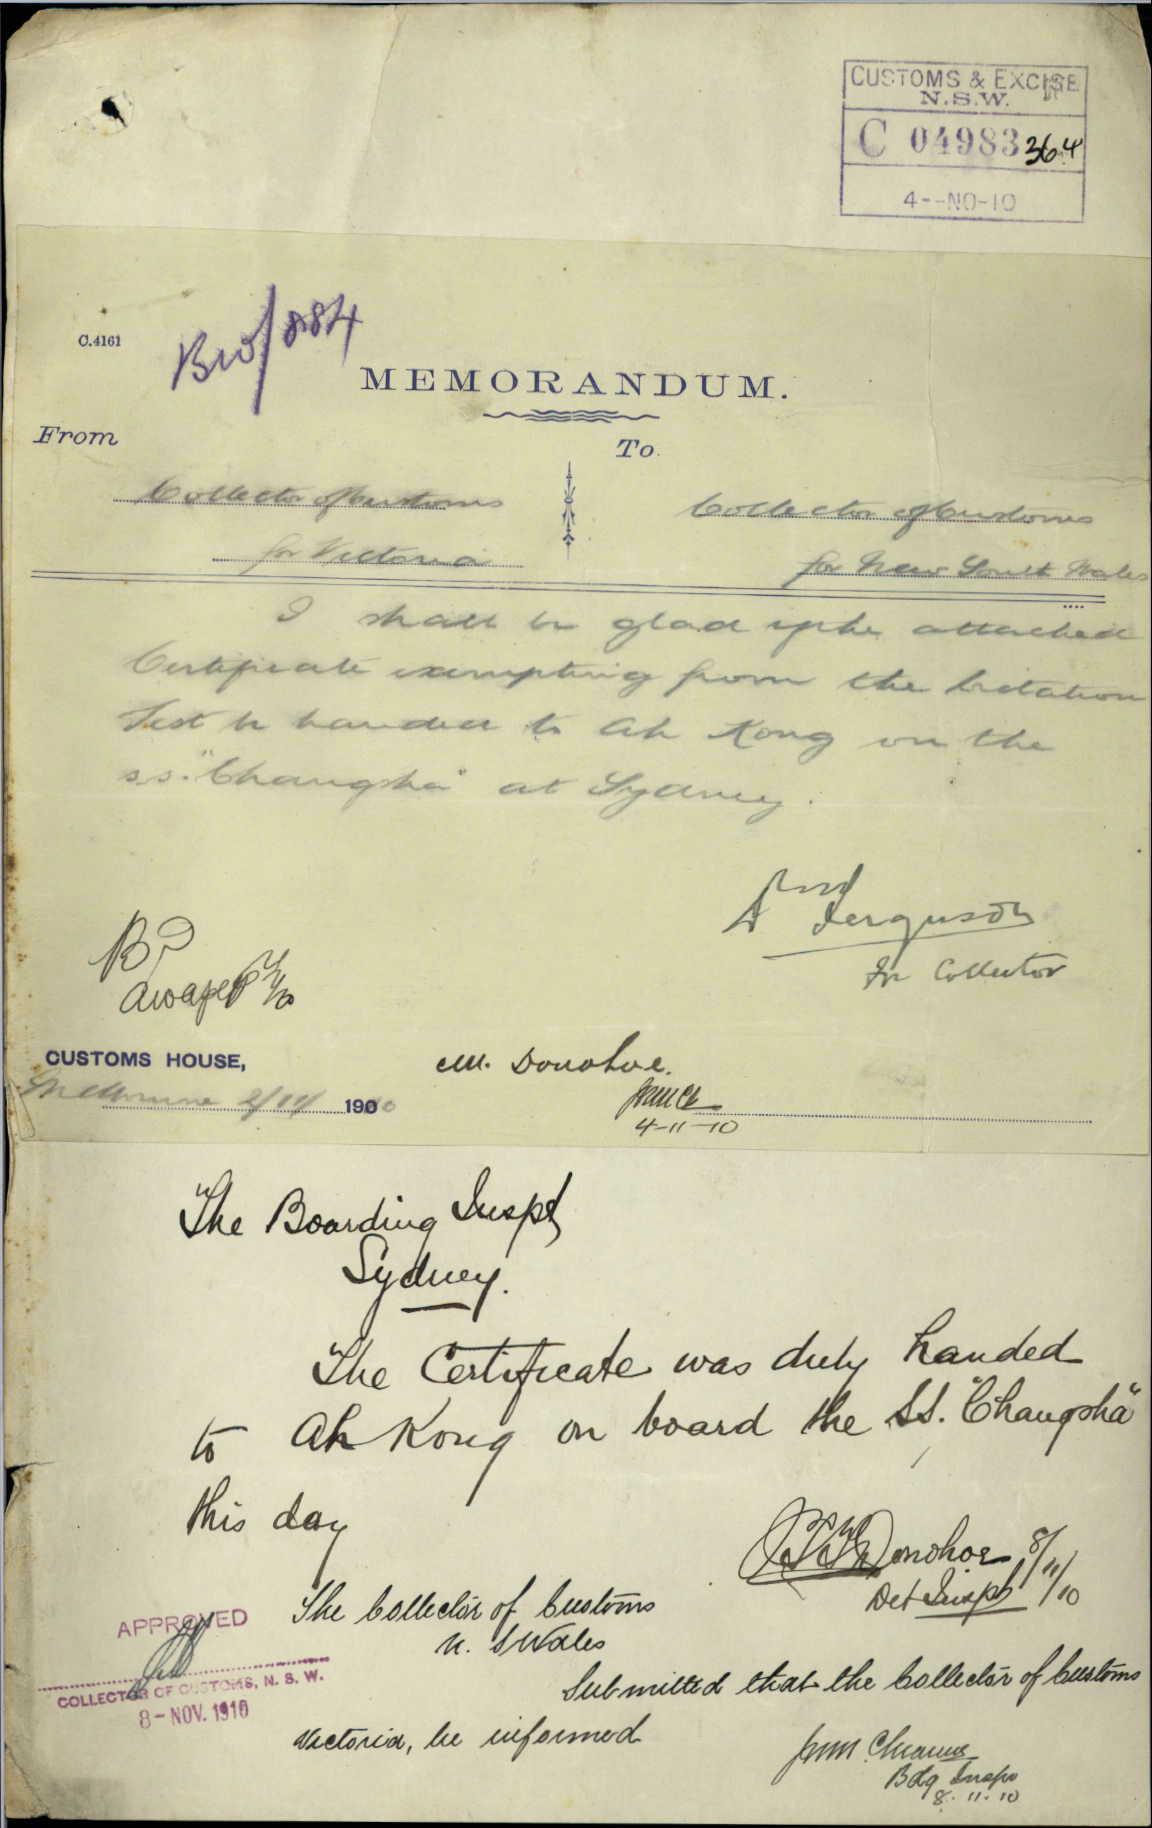 CUSTOMS & EXCISE
N.S.W.
C 04983 364
4--NO-10
C.4161
MEMORANDUM.
From
To.
Collector of Customs
for Victoria
Collector of Customs
for New South Wales
I shall be glad if the attached
Certificate exempting from the Dictation
Test be handed to Ah Kong on the
s.s. "Changsha" at Sydney.
Ferguson
for Collector
CUSTOMS HOUSE,
Melbourne 2/11/ 1910
Mr. Donohoe.
4-11-10
The Boarding Inspt
Sydney.
The Certificate was duly handed
to Ah Kong on board the S.S. "Changsha"
this day
Donohoe 8/11/10
Det Inspt
The Collector of Customs
N. S Wales
Submitted that the Collector of Customs
Victoria, be informed
Bdg Inspr
8.11.10
APPROVED
COLLECTOR OF CUSTOMS, N. S. W.
8-NOV.1910